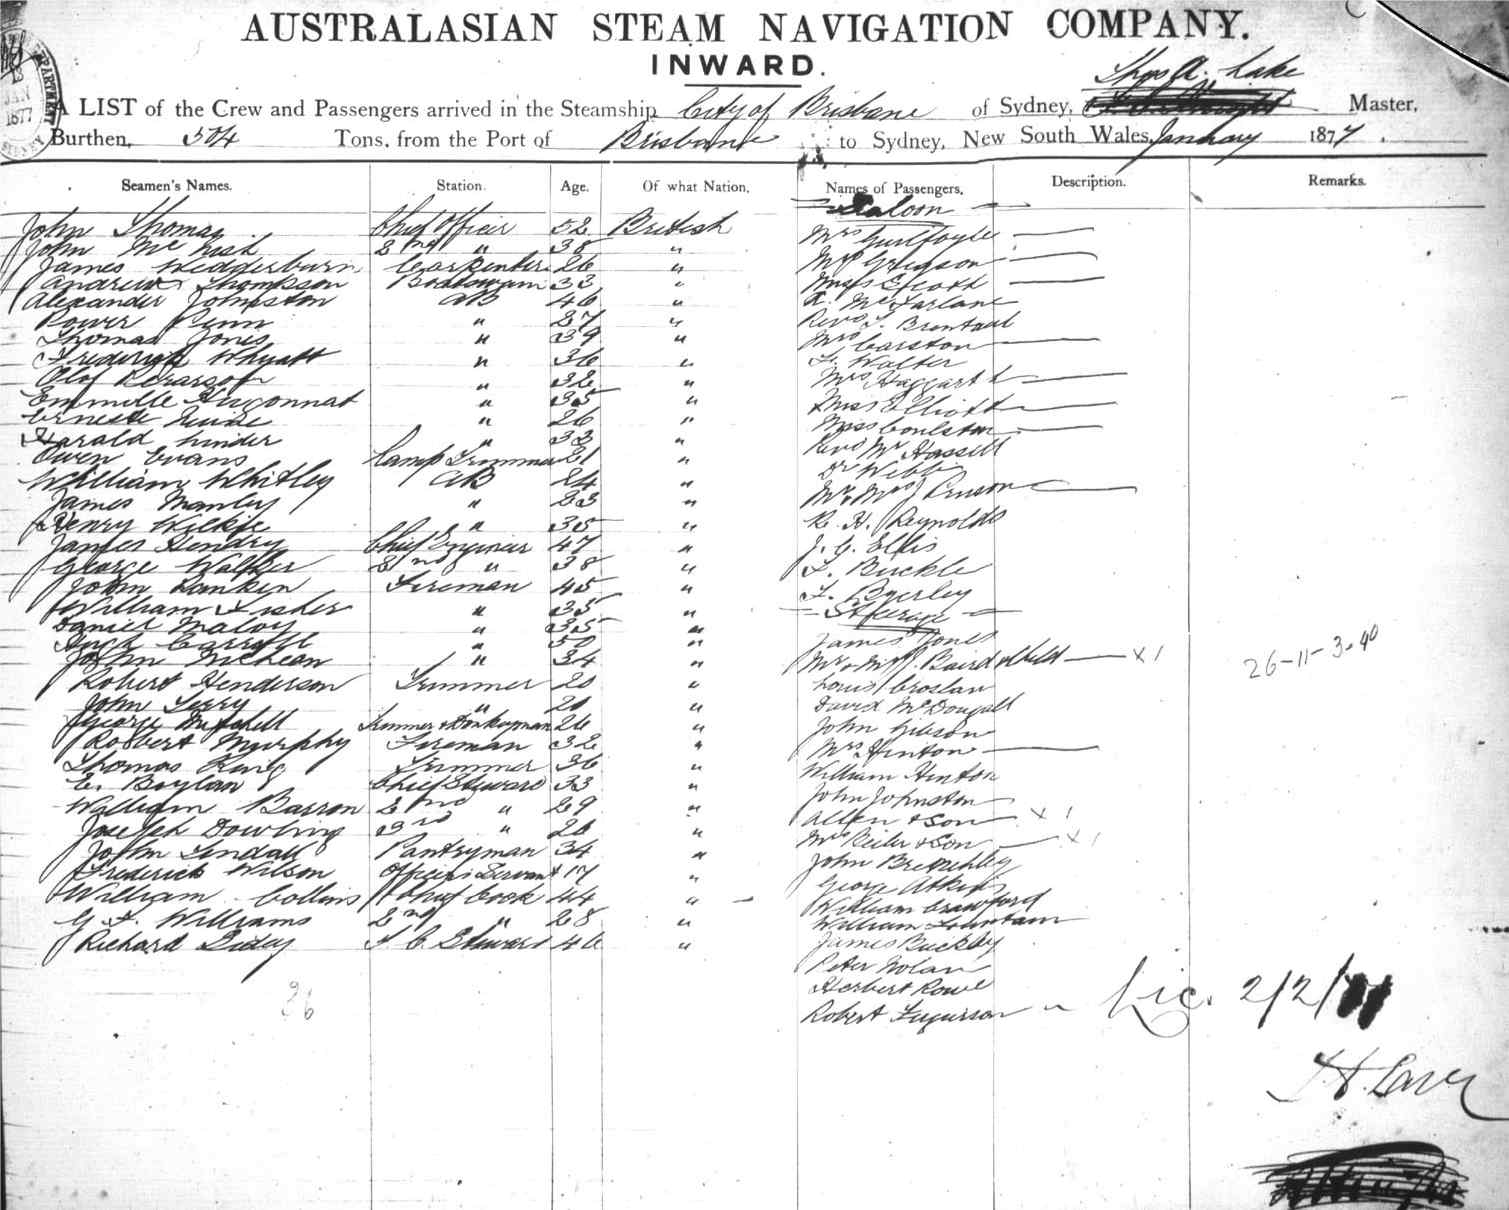 AUSTRALASIAN STEAM NAVIGATION COMPANY.
INWARD.
Thos A. Lake
A LIST of the Crew and Passengers arrived in the Steamship City of Brisbane of Sydney, Master,
Burthen, 504 Tons, from the Port of Brisbane to Sydney, New South Wales, January 1877.
Seamen's Names. Station. Age. Of what Nation, Names of Passengers, Description. Remarks.
Saloon
John Thomas Chief Officer 52 British
John McNish 2nd " 38 "
James Wedderburn Carpenter 26 "
Andrew Thompson Boatswain 33 "
Alexander Johnston AB 46 "
Power Penn " 27 "
Thomas Jones " 39 "
Frederick Whyatt " 36 "
Olof " 32 "
Emmille Hugonnat " 35 "
Erneste " 26 "
Harald Linder " 33 "
Owen Evans Lamp Trimmer 21 "
William Whitley AB 24 "
James Manley " 23 "
Henry Wilkie " 35 "
James Hendry Chief Engineer 47 "
George Walker 2nd " 38 "
John Rankin Fireman 45 "
William Fisher " 35 "
Daniel Maloy " 35 "
Hugh Carroll " 50 "
John McLean " 34 "
Robert Henderson Trimmer 20 "
John Terry " 20 "
George Mitchell Trimmer & Donkeyman 26 "
Robbert Murphy Fireman 32 "
Thomas King Trimmer 36 "
E. Boylan Chief Steward 33 "
William Barron 2nd " 29 "
Joseph Dowling 3rd " 20 "
John Tendall Pantryman 34 "
Frederick Wilson Officers Servant 17 "
William Collins Chief Cook 44 "
G. F. Williams 2nd " 28 "
Richard F C Steward 46 "
36
Mrs Guilfoyle
Mrs Gregson
Miss Scott
A. McFarlane
Revd J.
Mrs Carston
Walter
Mrs Haggart
Miss Elliott
Miss Coulston
Revd Mr Hassell
Dr Webb
Mr & Mrs
R. H. Reynolds
J. C. Ellis
F. Buckle
F. Byerley
Steerage
James Jones
Mr & Mrs J. Baird & Child x 1
26-11-3-90
Louis Croslan
David McDougall
John Gibson
Mrs Hinton
William Hinton
John Johnston
Allen & Son x 1
Mrs & Son x 1
John
George Atkins
William Crawford
William Fountain
James Buckley
Peter Nolan
Herbert Rowe
Robert Fugurson
Lic. 2/2/